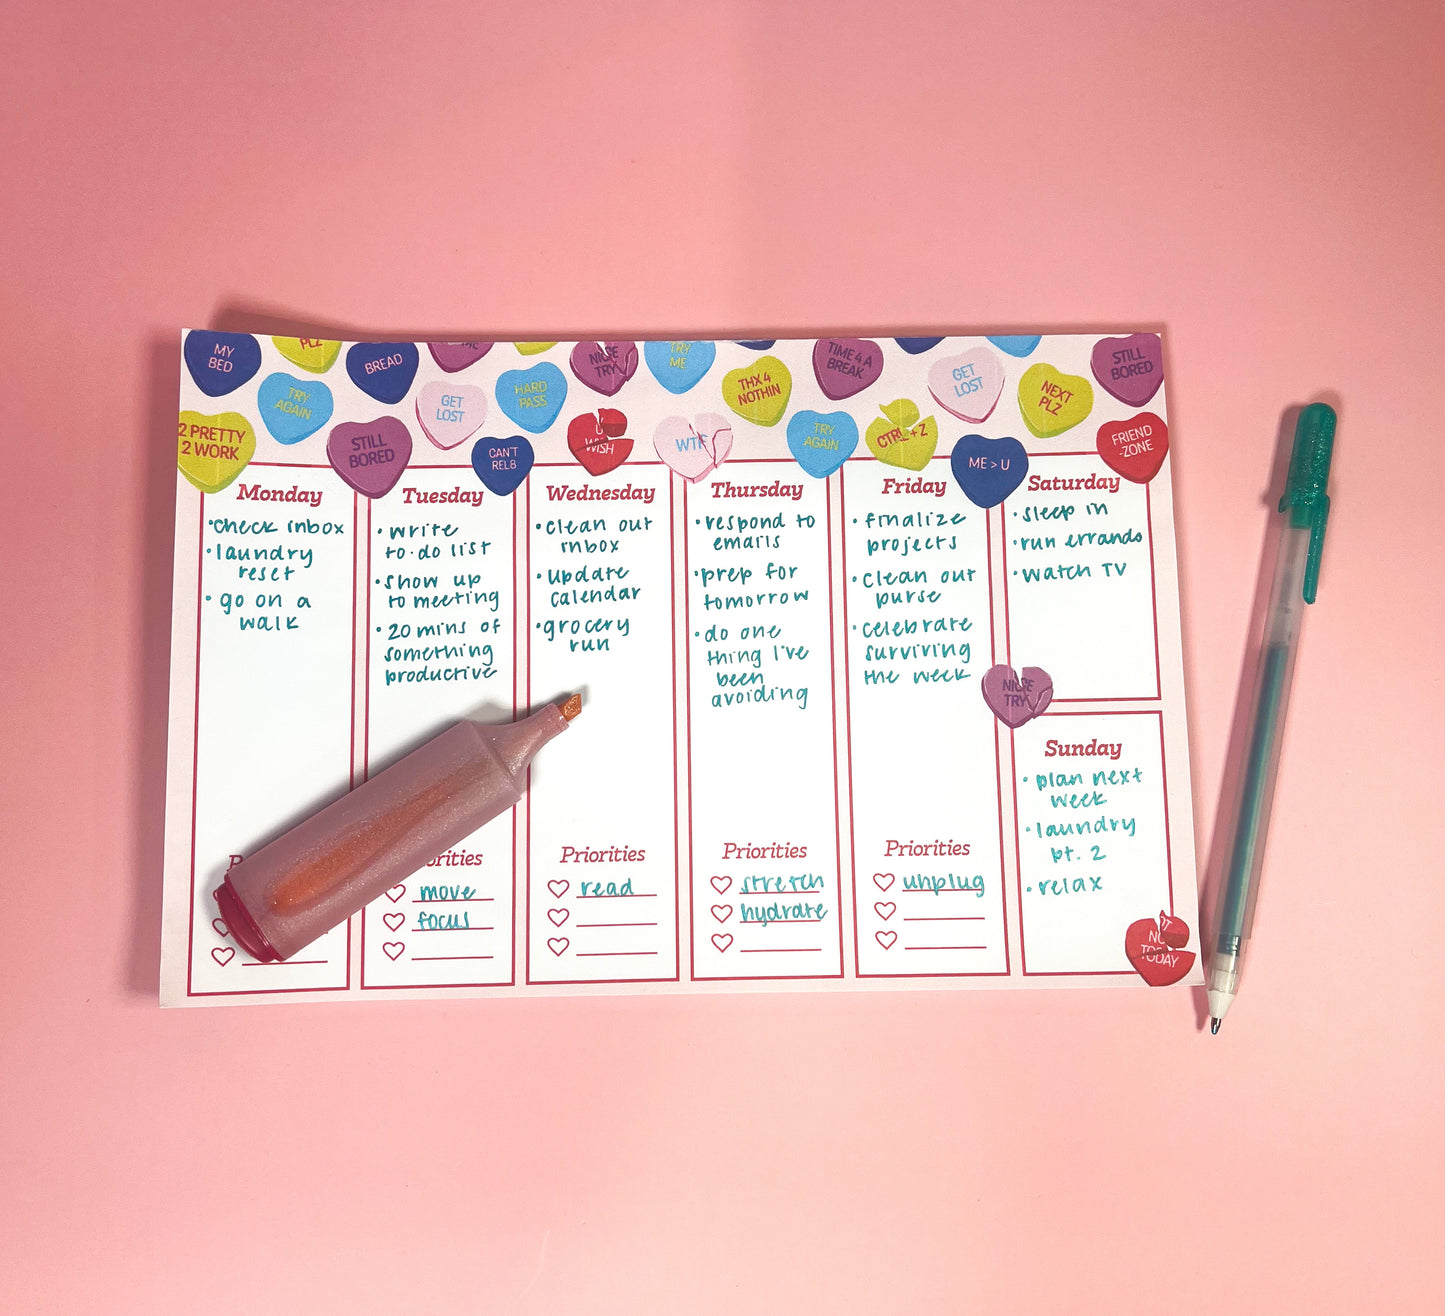 MY
BED
PLZ
BREAD
ME
NICE
TRY
TRY
ME
TIME 4 A
BREAK
GET
LOST
STILL
BORED
TRY
AGAIN
GET
LOST
HARD
PASS
THX 4
NOTHIN
NEXT
PLZ
2 PRETTY
2 WORK
STILL
BORED
CAN'T
REL8
U
WISH
WTF
TRY
AGAIN
CTRL+Z
ME > U
FRIEND
-ZONE
Monday
• check inbox
• laundry
reset
• go on a
walk
Tuesday
• write
to-do list
• show up
to meeting
• 20 mins of
something
productive
orities
move
focus
Wednesday
• clean out
inbox
• update
calendar
• grocery
run
Priorities
read
Thursday
• respond to
emails
• prep for
tomorrow
• do one
thing I've
been
avoiding
Priorities
stretch
hydrate
Friday
• finalize
projects
• clean out
purse
• celebrate
surviving
the week
Priorities
unplug
Saturday
• sleep in
• run errands
• watch TV
NICE
TRY
Sunday
• plan next
week
• laundry
pt. 2
• relax
NOT
TODAY